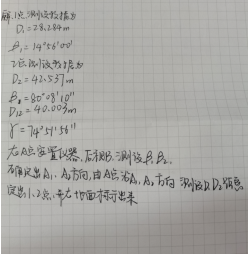 解:1点测设数据为
D₁=28.284m
β₁=14°56'00"
2点测设数据为
D₂=42.537m
β₂=80°08'10"
D₁₂=40.003m
γ=74°51'56"
在A点安置仪器,后视B,测设β₁β₂
确定出A₁、A₂方向,由A点沿A₁,A₂方向 测设D₁D₂ 随意
定出1、2点,并在地面标示出来